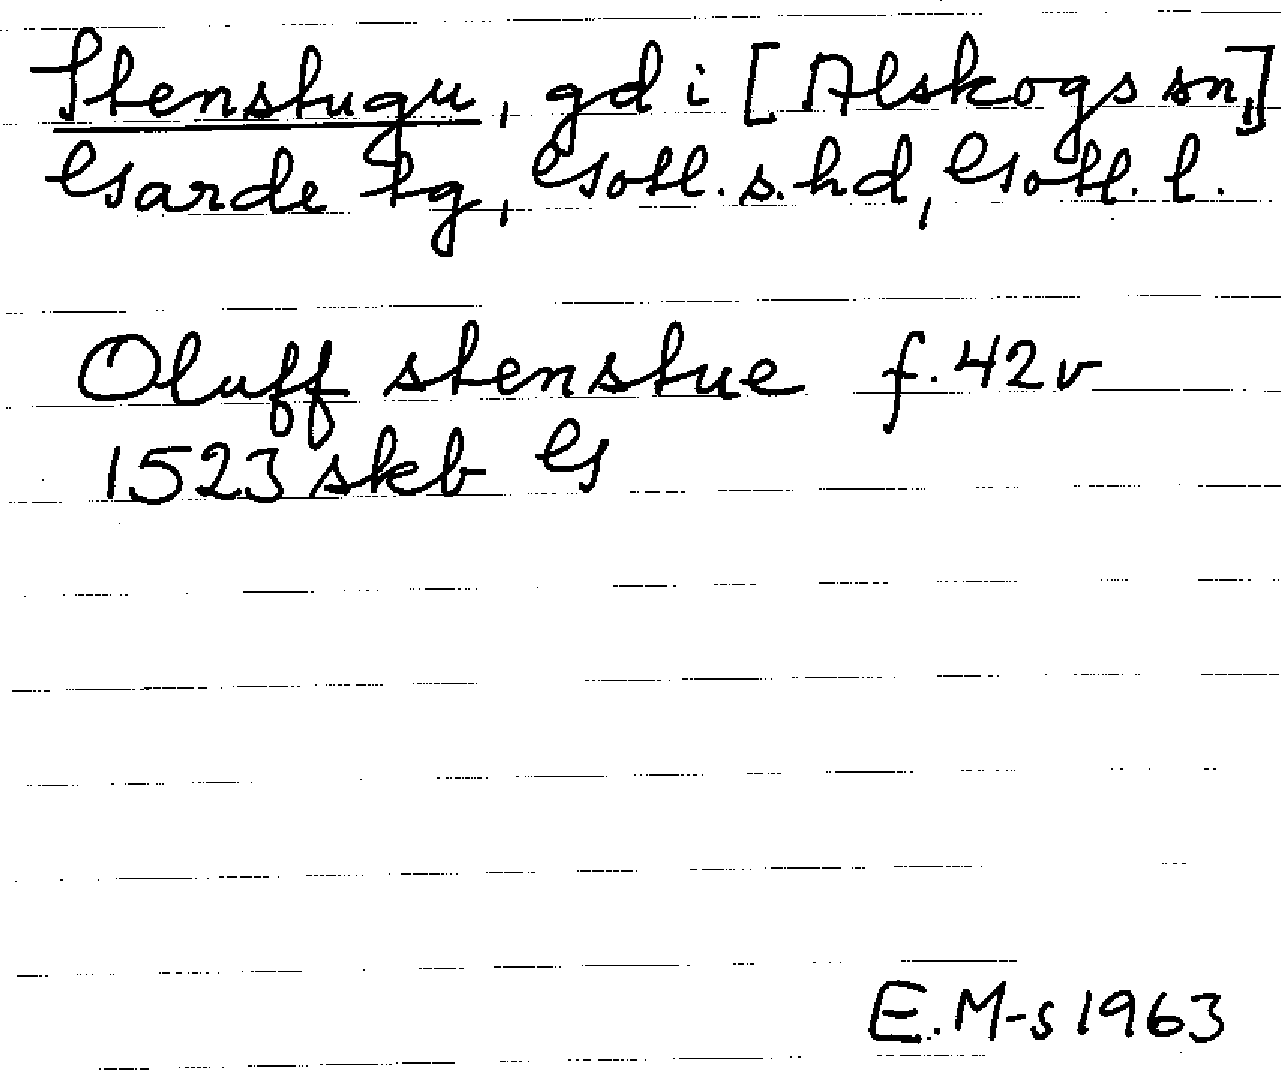 Stenstugu, gd i [Alskogs sn,]
Garde tg, Gotl. s. hd, Gotl. l.
Oluff stenstue f. 42v
1523 skb G
E. M-s 1963